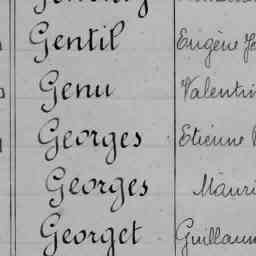 Gentil Eugène
Genu Valentin
Georges Etienne
Georges Mauri
Georget Guillaum